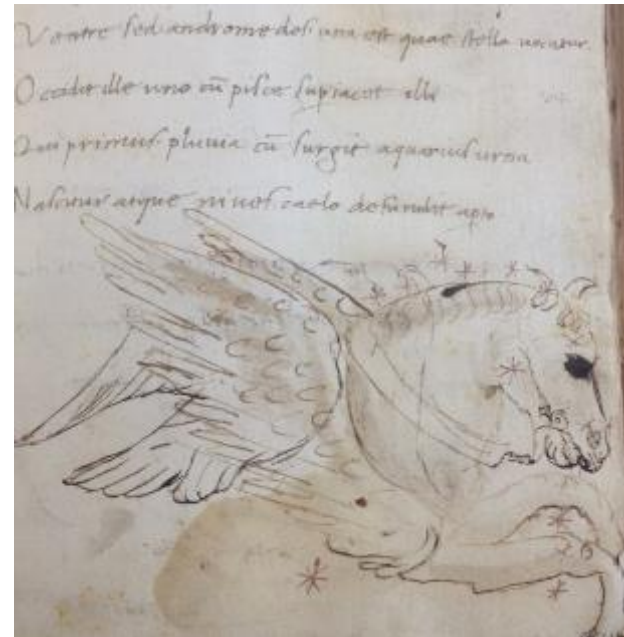 Ventre sed andromedes una est quae stella vocatur.
Occidit ille uno cũ pisce supiacet illi
Qui primus pluvia cũ surgit aquarius urna
Nascitur atque nivos caelo defundit